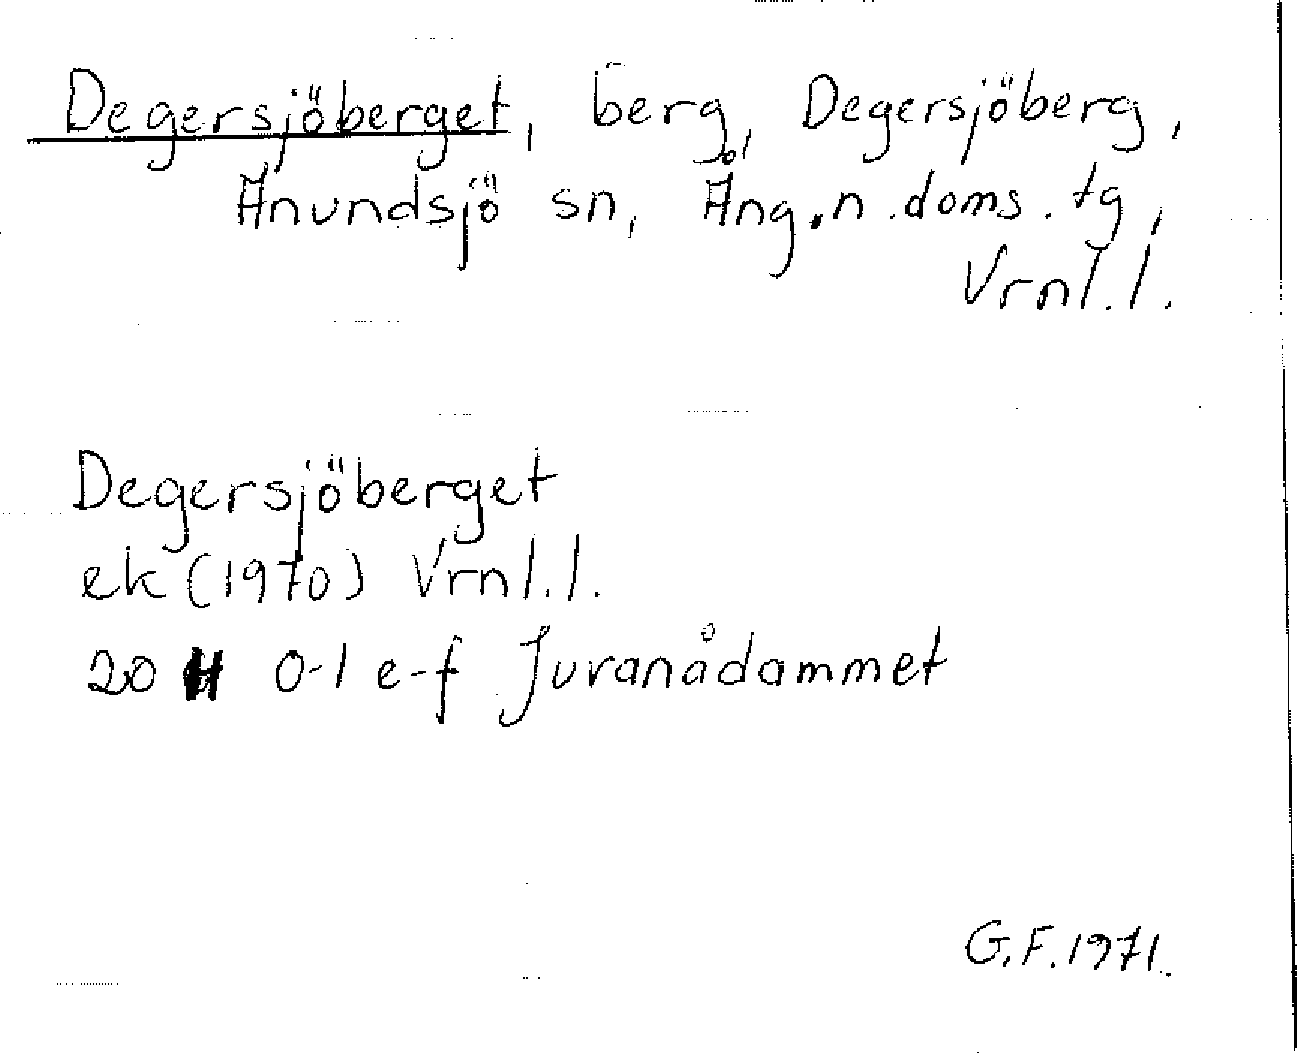 Degersjöberget, berg, Degersjöberg,
Anundsjö sn, Ång.n.doms.tg,
Vrnl.l.
Degersjöberget
ek (1970) Vrnl.l.
20 H 0-1 e-f Juranådammet
G.F.1971.